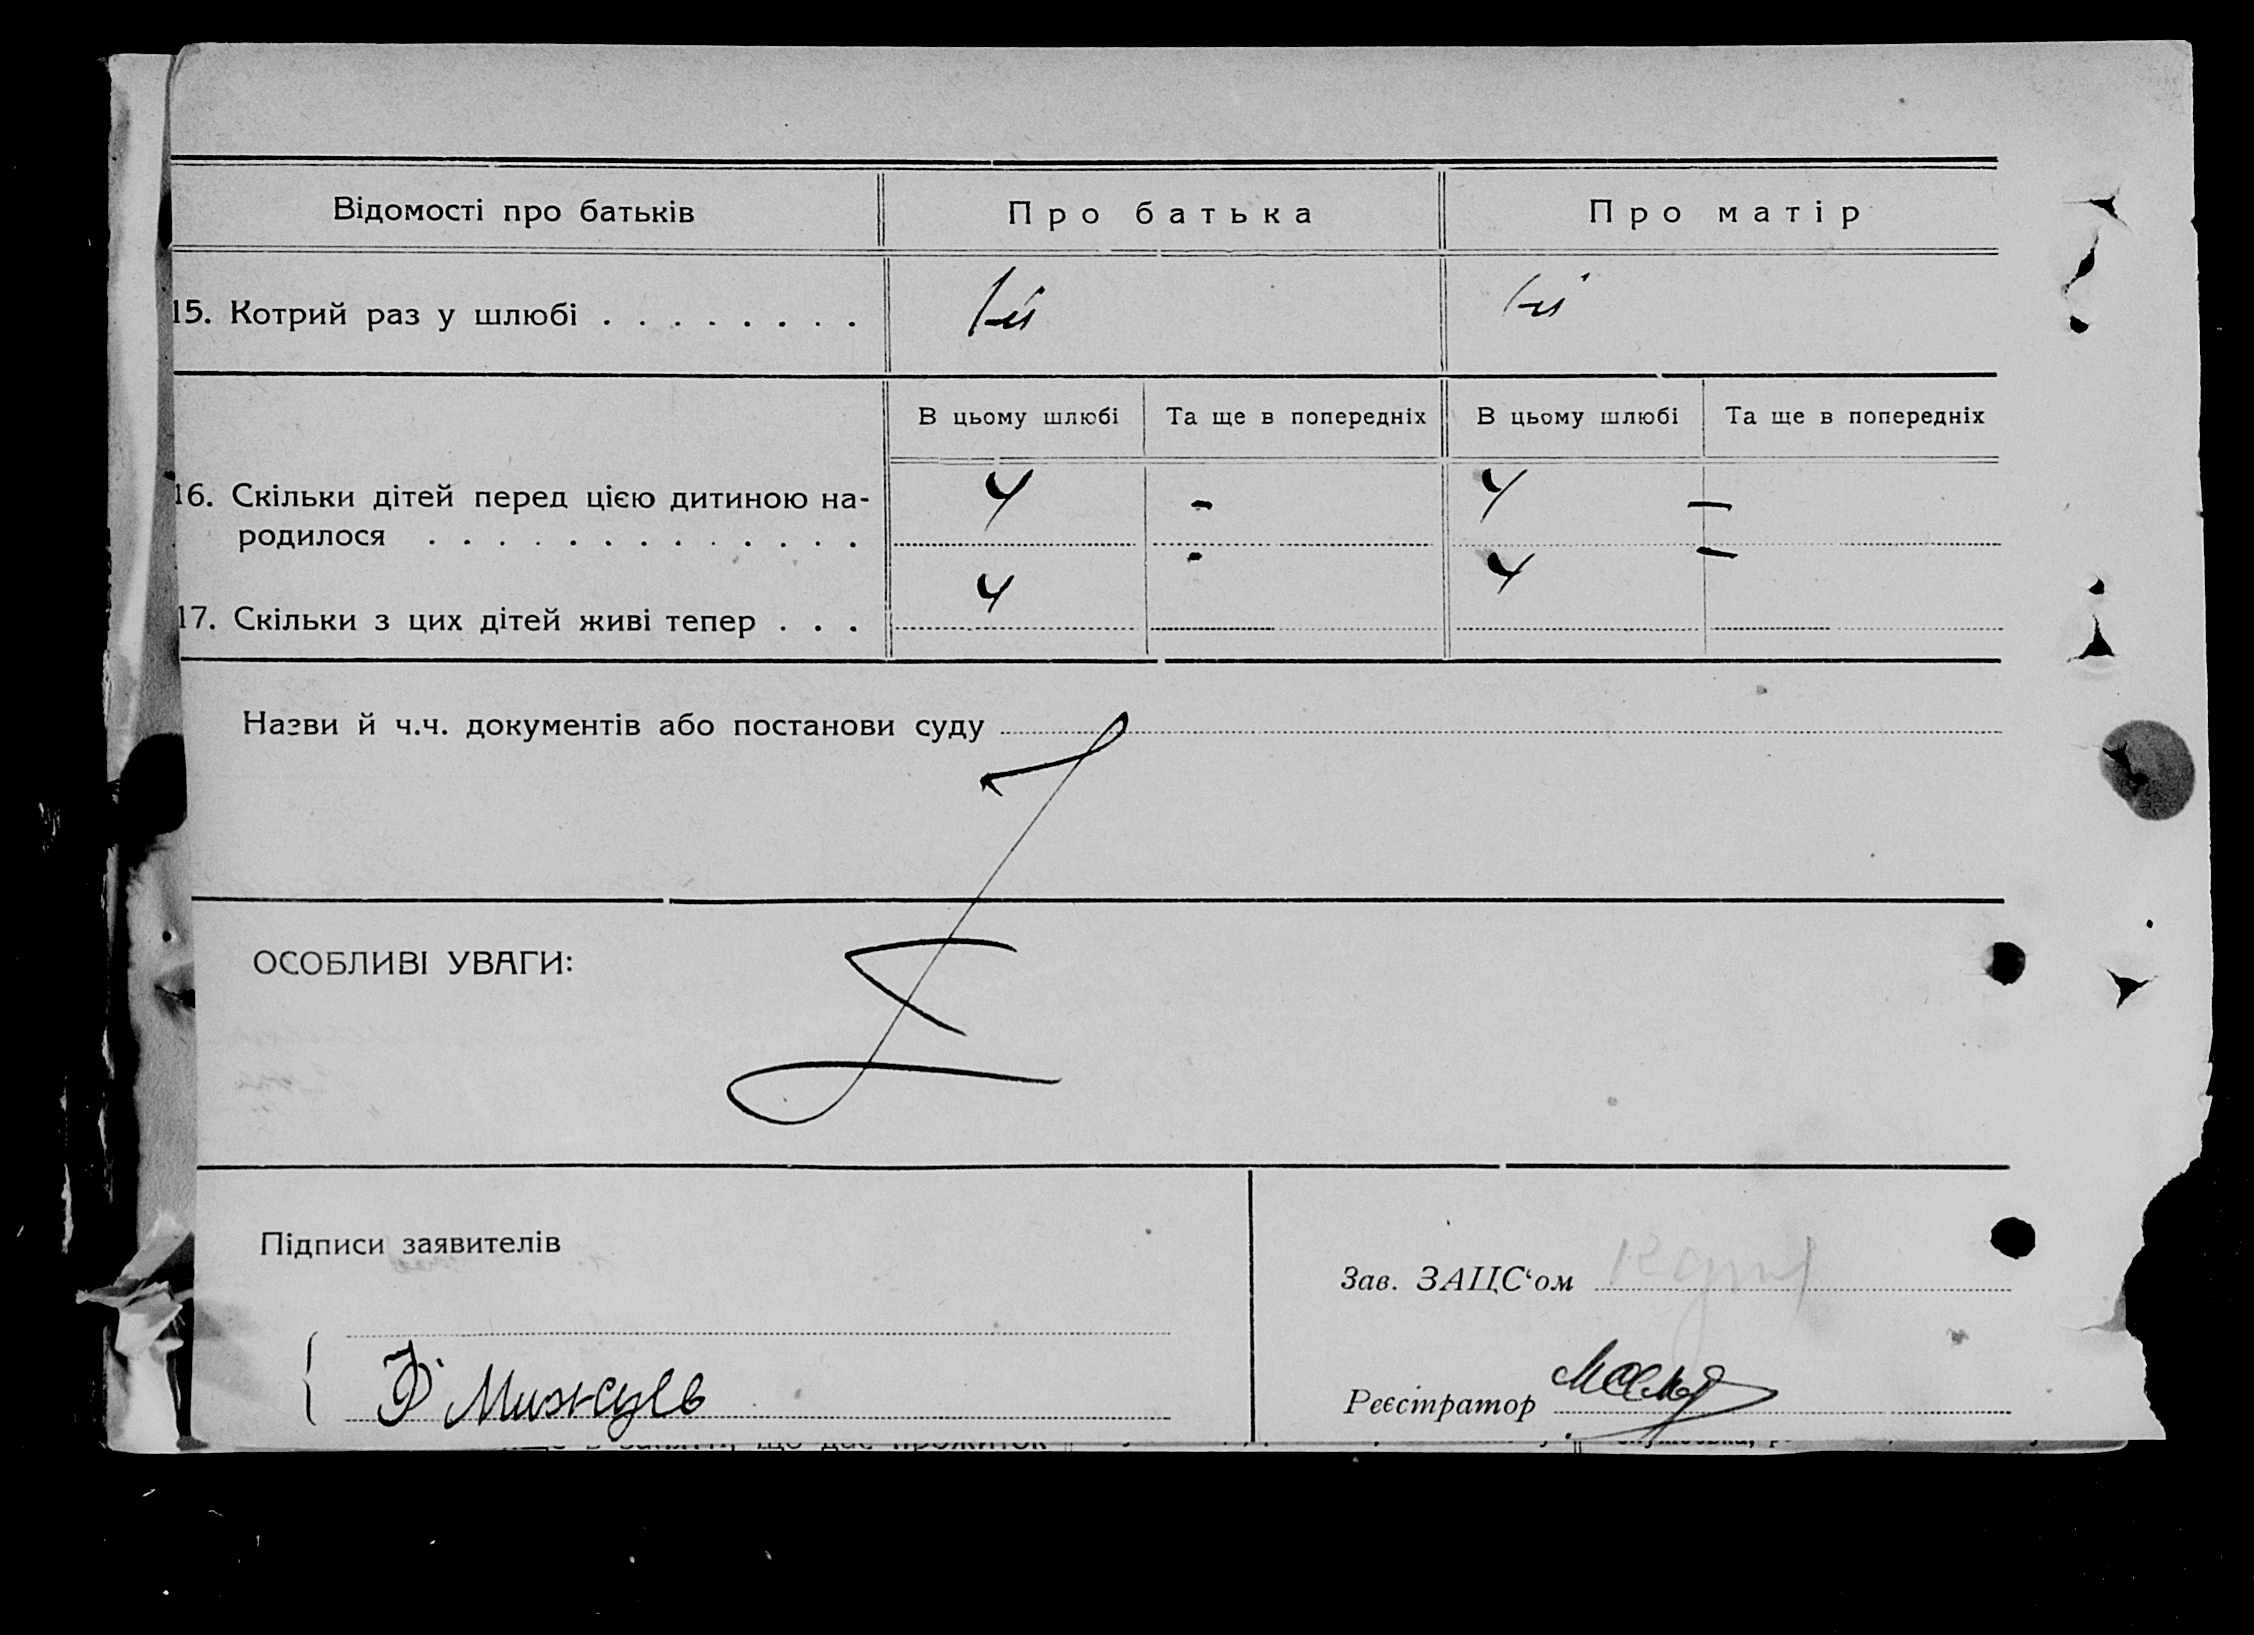 Відомості про батьків Про батька Про матір
15. Котрий раз у шлюбі . . . . . . . . 1-й 1-й
В цьому шлюбі Та ще в попередніх В цьому шлюбі Та ще в попередніх
16. Скільки дітей перед цією дитиною на- 4 - 4 -
родилося . . . . . . . . . . . . .
17. Скільки з цих дітей живі тепер . . . 4 - 4 -
Назви й ч.ч. документів або постанови суду
ОСОБЛИВІ УВАГИ:
Підписи заявителів
Зав. ЗАЦС‘ом
Реєстратор